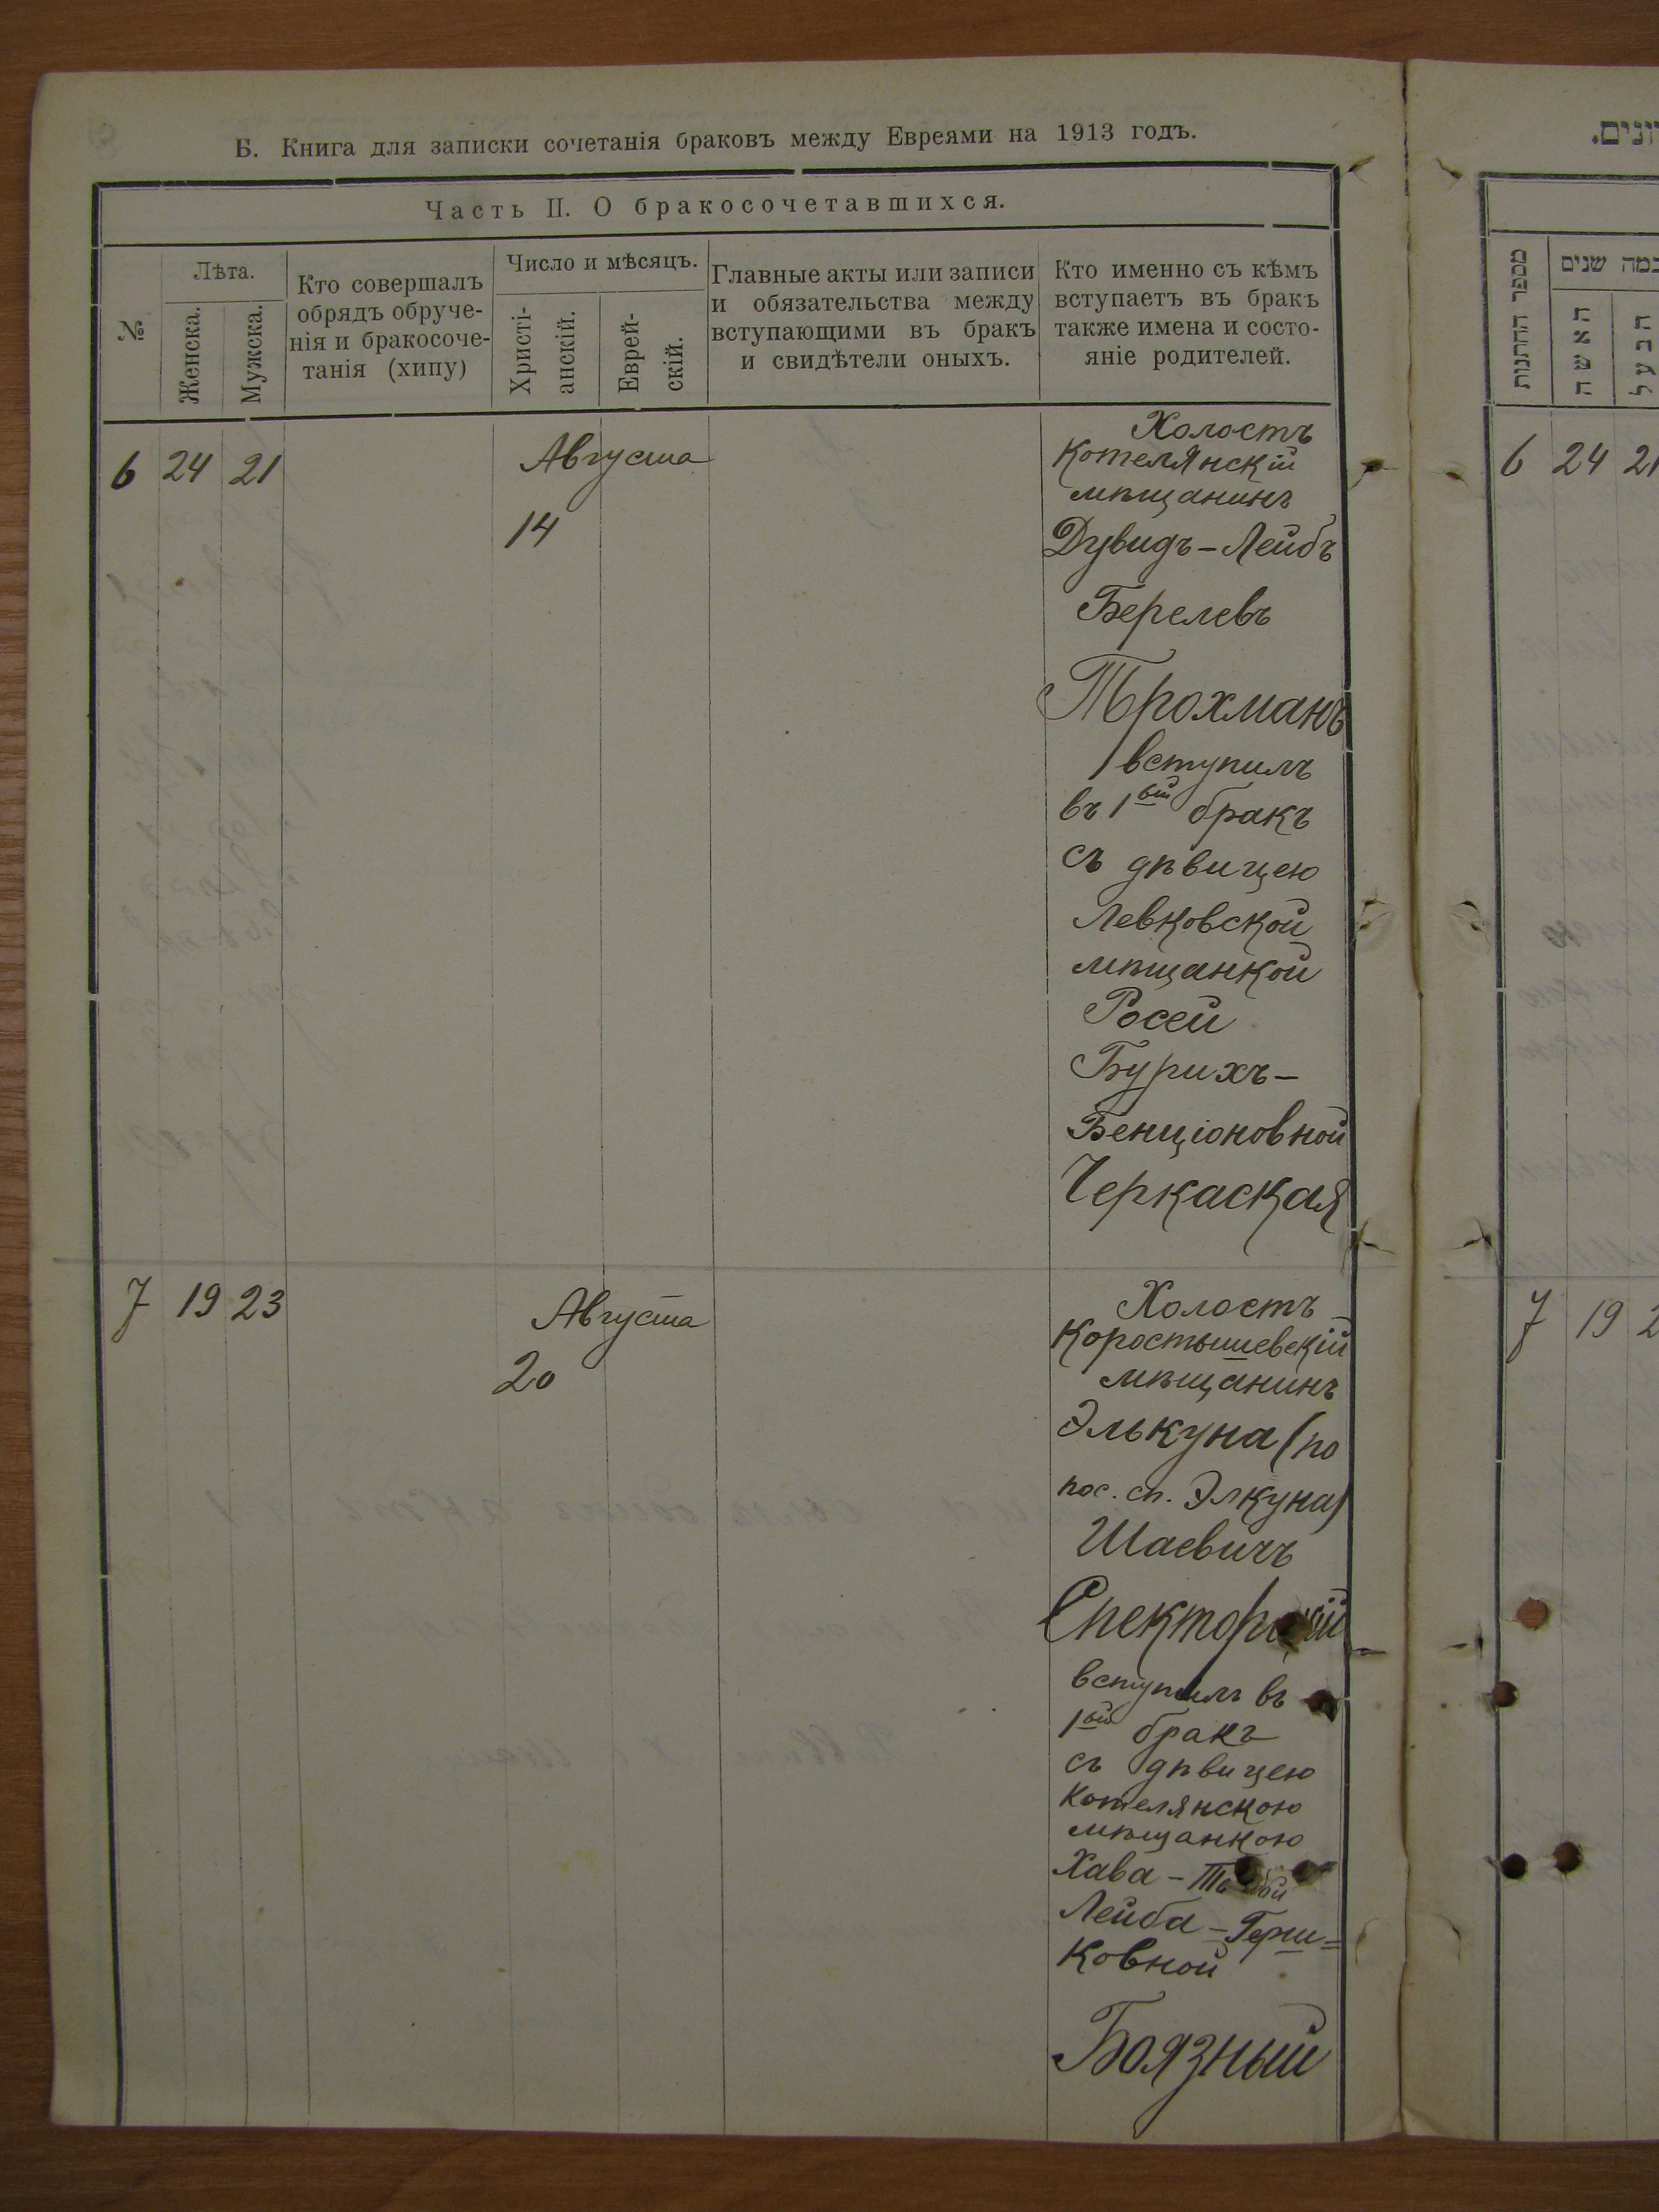 Б. Книга для записки сочетанія браковъ между Евреями на 1913 годъ.
Часть II. О бракосочетавшихся.
№
Лѣта.
Женска.
Мужска.
Кто совершалъ
обрядъ обруче-
нія и бракосоче-
танія (хипу)
Число и мѣсяцъ.
Христі-
анскій.
Еврей-
скій.
Главные акты или записи
и обязательства между
вступающими въ бракъ
и свидѣтели оныхъ.
Кто именно съ кѣмъ
вступаетъ въ бракъ
также имена и состо-
яніе родителей.
6 24 21
Августа
14
Холостъ
Котелянскій
мѣщанинъ
Дувидъ-Лейбъ
Берелевъ
Трохманъ
вступилъ
въ 1ый бракъ
съ дѣвицею
Левковской
мѣщанкой
Росей
Бурихъ-
Бенціоновной
Черкаская
7 19 23
Августа
20
Холостъ
Коростышевскій
мѣщанинъ
Элькуна (по
пос. сп. Элкуна)
Шаевичъ
Спекторскій
вступилъ въ
1ый бракъ
съ дѣвицею
Котелянскою
мѣщанкою
Хава-
Лейба-Герш=
ковной
Боязный
מספר החתונות
שנים
האשה
הבעל
6 24 21
7 19 2